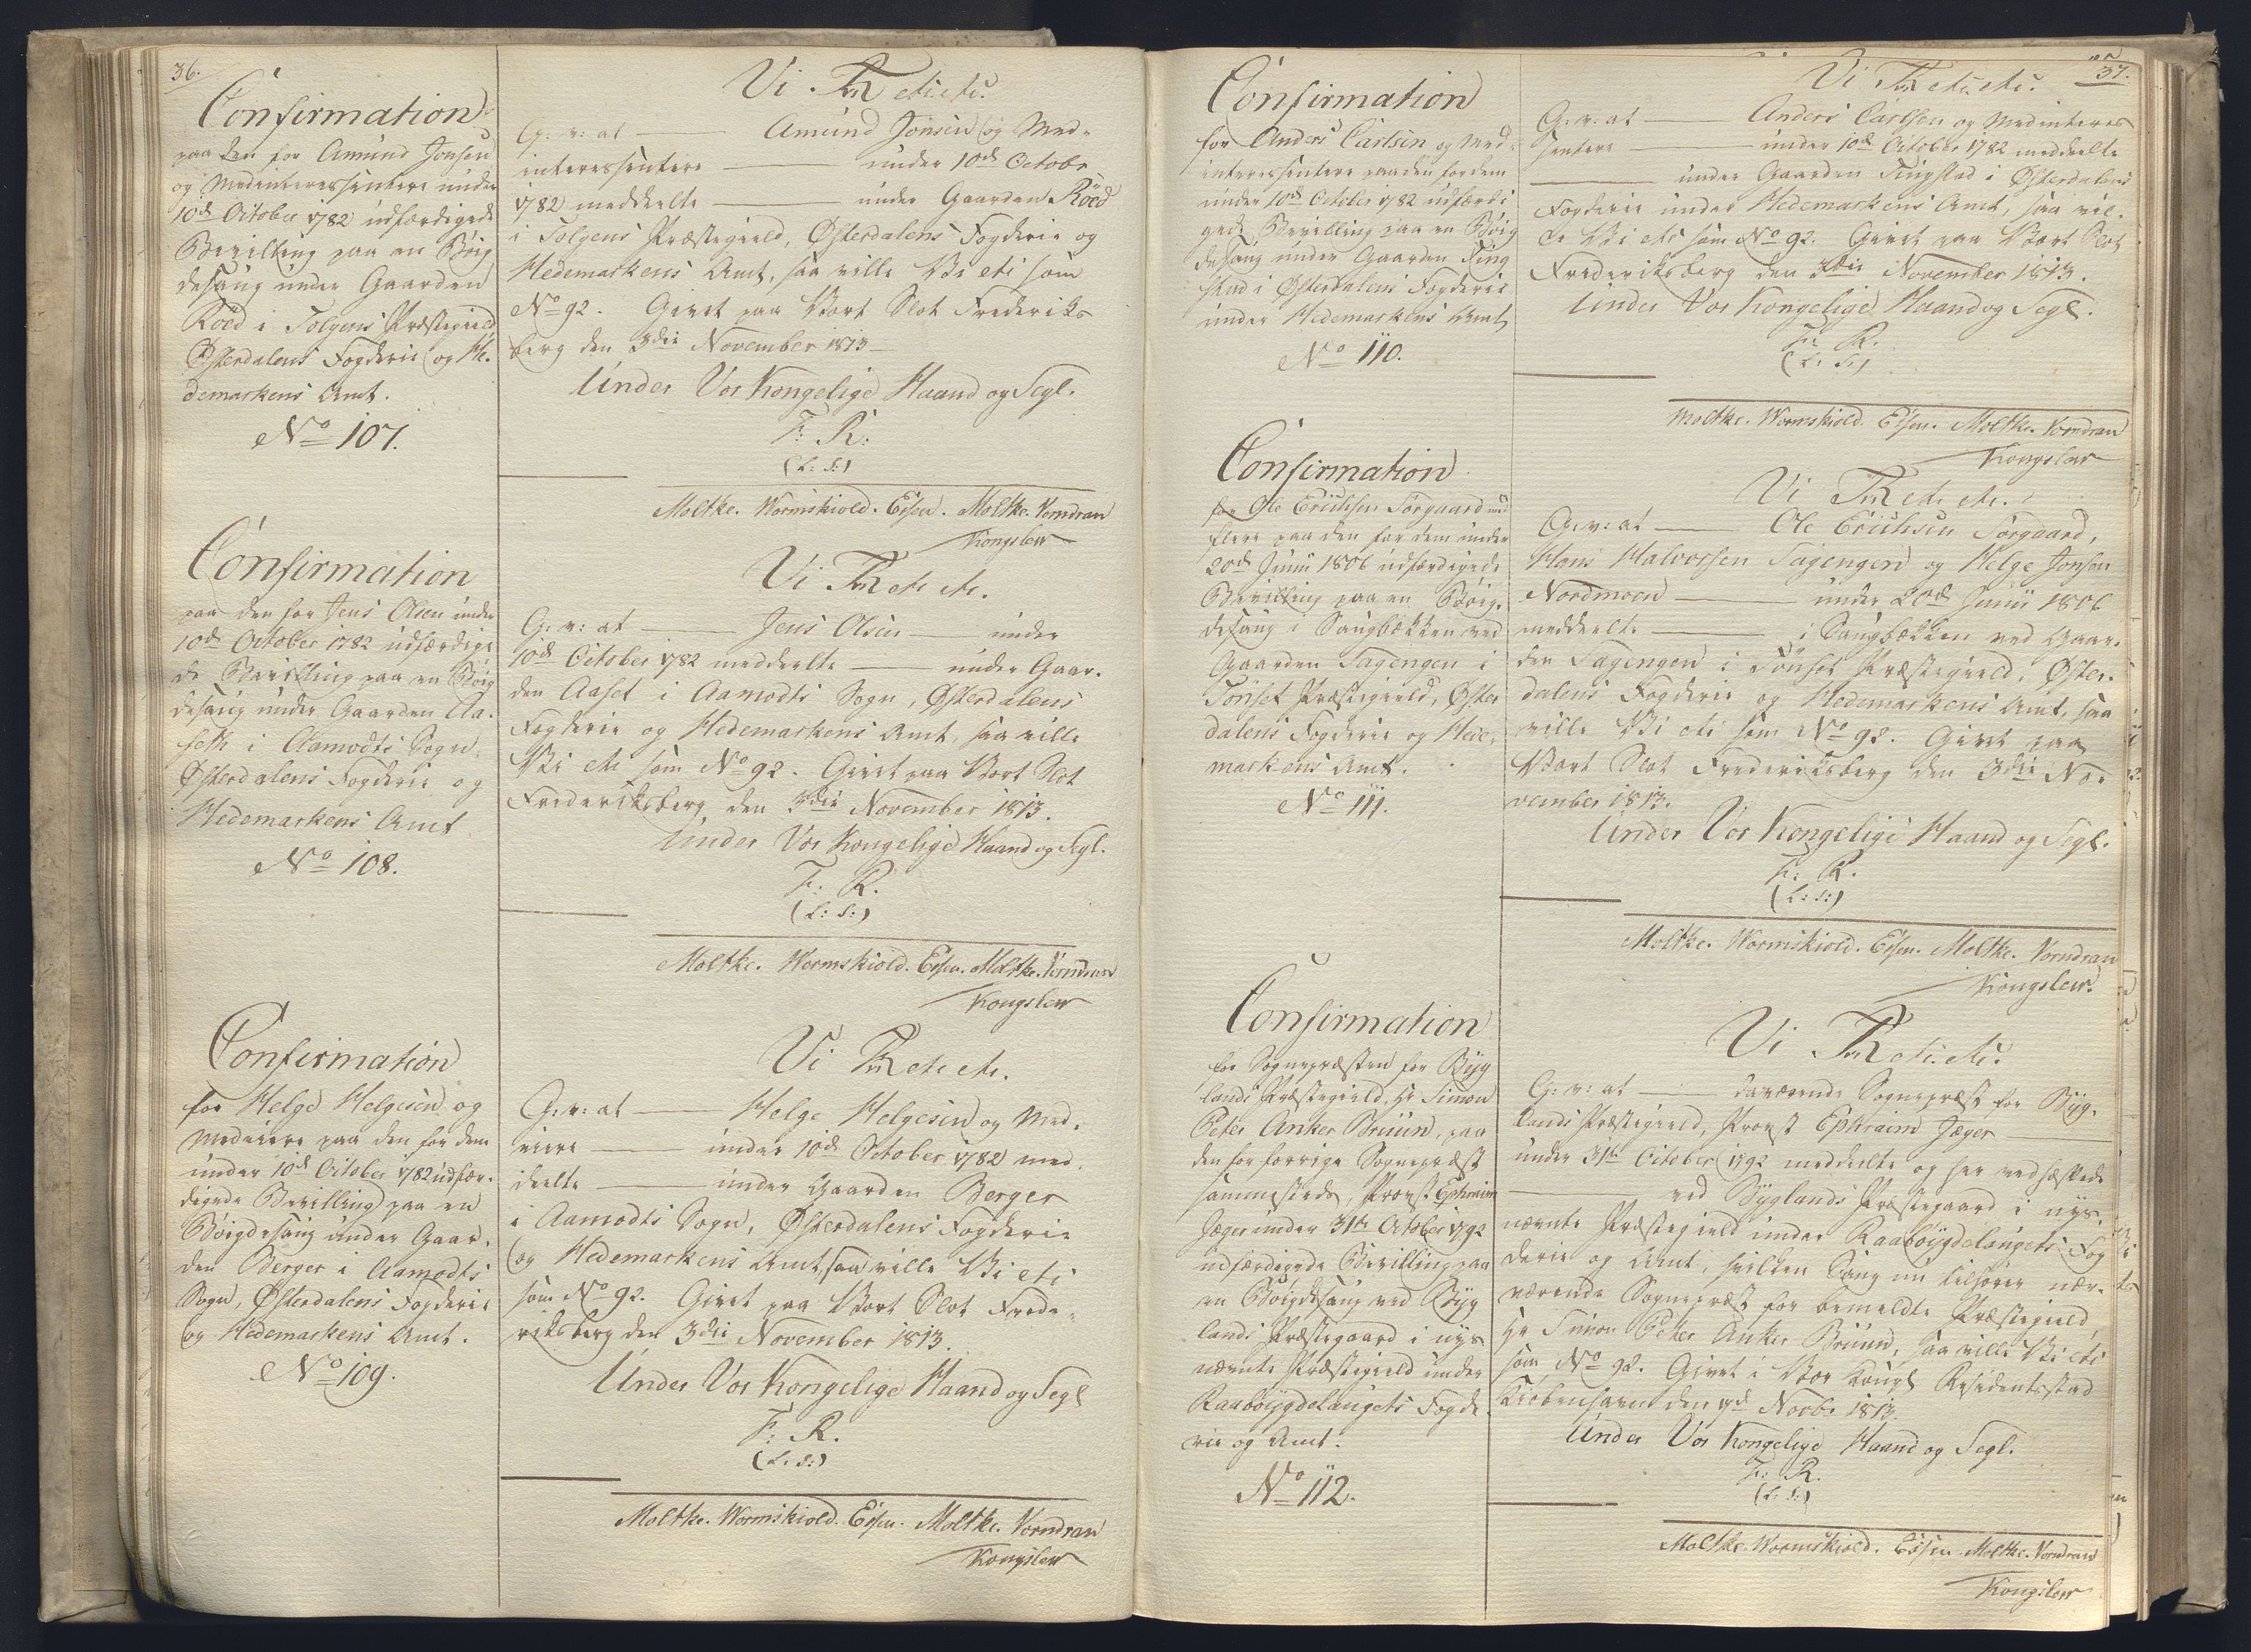 36.
Confirmation
paa den for Amund Jonsen
og Medinteressentere under
10de October 1782 udfærdigede
Bevilling paa en Böig
desaug under Gaarden
Röed i Tolgens Præstegield
Österdalens Fogderie og He-
demarkens Amt.
No 107.
Vi Fr. etc. etc.
G: v: at — Amund Jonsen og Med-
interessentere — under 10de Octobr
1782 meddeelte — under Gaarden Röed
i Tolgens Præstegield, Österdalens Fogderie og
Hedemarkens Amt, saa ville Vi etc som
No 92. Givet paa Vort Slot Frederiks
berg den 3die November 1813
Under Vor Kongelige Haand og Segl.
F: R:
(L: S:)
Moltke. Wormskiold. Essen. Moltke. Vorndran
Kongslew
Confirmation
paa den for Jens Olsen under
10de October 1782 udfærdige
de Bevilling paa en Böig
desaug under Gaarden Aa-
seth i Aamodts Sogn,
Österdalens Fogderie og
Hedemarkens Amt
No 108.
Vi Fr. etc. etc.
G: v: at — Jens Olsen — under
10de October 1782 meddeelte — under Gaar-
den Aaset i Aamodts Sogn, Österdalens
Fogderie og Hedemarkens Amt, saa ville
Vi etc som No 92. Givet paa Vort Slot
Frederiksberg den 3die November 1813.
Under Vor Kongelige Haand og Segl.
F: R.
(L: S:)
Moltke. Wormskiold. Essen. Moltke. Vorndran
Kongslew
Confirmation
for Helge Helgesen og
Medeiere paa den for dem
under 10de October 1782 udfær-
digede Bevilling paa en
Böigdesaug under Gaar-
den Berger i Aamodts
Sogn, Österdalens Fogderie
og Hedemarkens Amt.
No 109.
Vi Fr. etc. etc.
G: v: at — Helge Helgesen og Med-
eiere — under 10de October 1782 med-
deelte — under Gaarden Berger
i Aamodts Sogn, Österdalens Fogderie
og Hedemarkens Amt, saa ville Vi etc
som No 92. Givet paa Vort Slot Frede-
riksberg den 3die November 1813.
Under Vor Kongelige Haand og Segl
F: R.
(L. S:)
Moltke. Wormskiold. Essen. Moltke. Vorndran
Kongslew
37.
Confirmation
for Anders Carlsen og Med-
interessentere paa den for dem
under 10de October 1782 udfærdi
gede Bevilling paa en Böig
desaug under Gaarden Fing
stad i Österdalens Fogderie
under Hedemarkens Amt,
No 110.
Vi Fr. etc. etc.
G: v: at — Anders Carlsen og Medinteres
sentere — under 10de October 1782 meddeelte
— under Gaarden Fingstad i Österdalens
Fogderie under Hedemarkens Amt, saa vil-
le Vi etc som No 92. Givet paa Vort Slot
Frederiksberg den 3die November 1813.
Under Vor Kongelige Haand og Segl.
F: R.
(L. S.)
Moltke. Wormskiold. Essen. Moltke. Vorndran
Kongslew
Confirmation
for Ole Erichsen Sörgaard med
flere paa den for dem under
20de Junii 1806 udfærdigede
Bevilling paa en Böig-
desaug i Saugbækken ved
Gaarden Tagengen i
Tönset Præstegield, Öster
dalens Fogderie og Hede-
markens Amt.
No 111.
Vi Fr. etc. etc.
G: v: at — Ole Erichsen Sörgaard,
Hans Halvorsen Tagengen og Helge Jonsen
Nordmoen — under 20de Junii 1806
meddeelte — i Saugbækken ved Gaar-
den Tagengen i Tönset Præstegield, Öster-
dalens Fogderie og Hedemarkens Amt, saa
ville Vi etc som No 92. Givet paa
Vort Slot Frederiksberg den 3die No-
vember 1813.
Under Vor Kongelige Haand og Segl.
F: R.
(L: S:)
Moltke. Wormskiold. Essen. Moltke. Vorndran
Kongslew.
Confirmation
for Sognepræsten for Byg
lands Præstegield, Hr Simon
Peter Anker Bruun, paa
den for forrige Sognepræst
sammesteds, Provst Ephraim
Jæger under 31te October 1792
udfærdigede Bevilling paa
en Böigdesaug ved Byg
lands Præstegaard i nys
nævnte Præstegield under
Raaböigdelaugets Fogde-
rie og Amt.
No 112.
Vi Fr. etc. etc.
G: v: at — daværende Sognepræst for Byg-
lands Præstegield, Provst Ephraim Jæger —
under 31te October 1792 meddeelte og her vedhæftede
— ved Byglands Præstegaard i nys-
nævnte Præstegield under Raaböigdelaugets Fog
derie og Amt, hvilken Saug nu tilhører nær-
værende Sognepræst for bemeldte Præstegield,
Hr Simon Peter Anker Bruun, saa ville Vi etc
som No 92. Givet i Vor Kongl Residentsstad
Kiöbenhavn den 9de Novbr 1813.
Under Vor Kongelige Haand og Segl.
F: R.
(L: S:)
Moltke. Wormskiold. Essen. Moltke. Vorndran
Kongslew